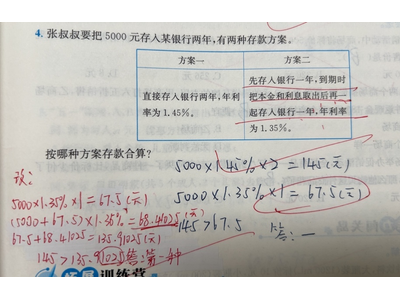 4. 张叔叔要把 5000 元存入某银行两年,有两种存款方案。
方案一
方案二
直接存入银行两年,年利
率为 1.45%。
先存入银行一年,到期时
把本金和利息取出后再一
起存入银行一年,年利率
为 1.35%。
按哪种方案存款合算?
5000×1.45%×2=145(元)
5000×1.35%×1=67.5(元)
145>67.5 答:一
改:
5000×1.35%×1=67.5(元)
(5000+67.5)×1.35%=68.41025(元)
67.5+68.41025=135.91025(元)
145>135.91025 答:第一种
训练营